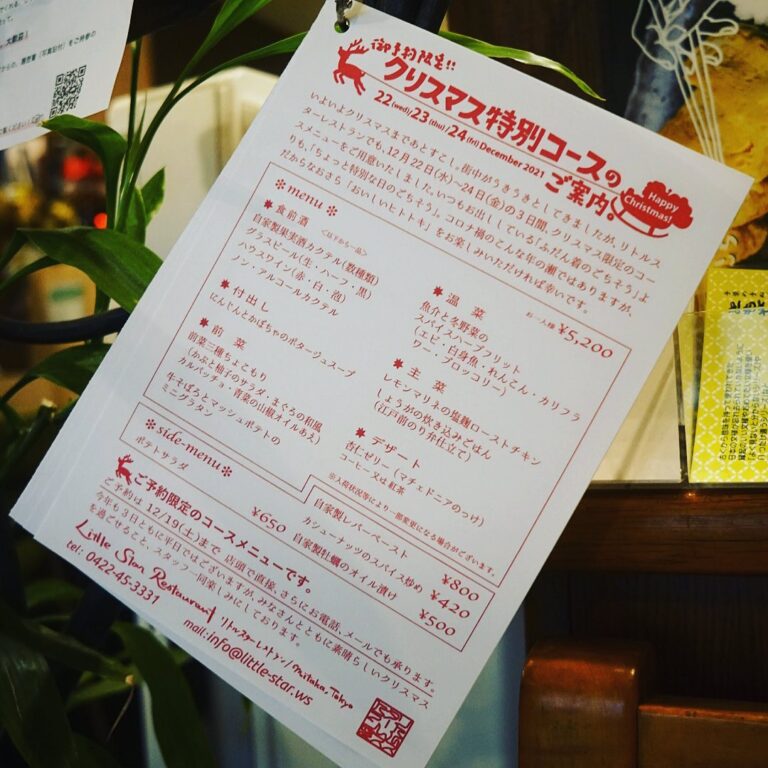 御予約限定!!
クリスマス特別コースの
ご案内。
22(wed)23(thu)24(fri)December 2021
Happy
Christmas!
いよいよクリスマスまであとすこし。街中がうきうきとしてきましたが、リトルス
ターレストランでも、12月22日(水)〜24日(金)の3日間、クリスマス限定のコー
スメニューをご用意いたしました。いつもお出ししている「ふだん着のごちそう」よ
りも、「ちょっと特別な日のごちそう」。コロナ禍のこんな年の瀬ではありますが、
だからなおさら「おいしいヒトトキ」をお楽しみいただければ幸いです。
お一人様 ¥5,200
*menu*
食前酒
<以下から一品>
自家製果実酒カクテル(数種類)
グラスビール(生・ハーフ・黒)
ハウスワイン(赤・白・泡)
ノン・アルコールカクテル
付出し
にんじんとかぼちゃのポタージュスープ
前菜
前菜三種ちょこもり
(かぶと柚子のサラダ・まぐろの和風
カルパッチョ・青菜の山椒オイルあえ)
牛そぼろとマッシュポテトの
ミニグラタン
温菜
魚介と冬野菜の
スパイスハーブフリット
(エビ・白身魚・れんこん・カリフラ
ワー・ブロッコリー)
主菜
レモンマリネの塩麹ローストチキン
しょうがの炊き込みごはん
(江戸前のり弁仕立て)
デザート
杏仁ゼリー(マチェドニアのっけ)
コーヒー又は紅茶
※入荷状況等により一部変更になる場合がございます。
*side-menu*
ポテトサラダ
¥650
自家製レバーペースト
¥800
カシューナッツのスパイス炒め
¥420
自家製牡蠣のオイル漬け
¥500
ご予約限定のコースメニューです。
ご予約は12/19(土)まで 店頭で直接、さらにお電話、メールでも承ります。
今年も3日ともに平日ではございますが、みなさんとともに素晴らしいクリスマス
を過ごせること、スタッフ一同楽しみにしております。
Little Star Restaurant リトルスターレストラン/mitaka, Tokyo
tel: 0422-45-3331
mail:info@little-star.ws